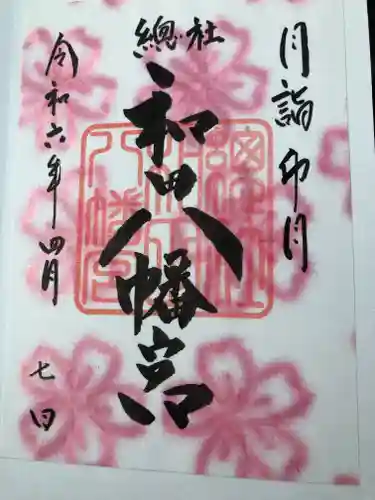 月詣 卯月
總社
和田八幡宮
令和六年四月
七日